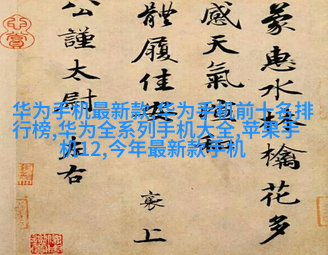 华为手机最新款,华为手机前十名排
行榜,华为全系列手机大全,苹果手
机12,今年最新款手机
蒙惠水林檎花多
感天氣暄和
體履佳安
襄上
公謹太尉左右